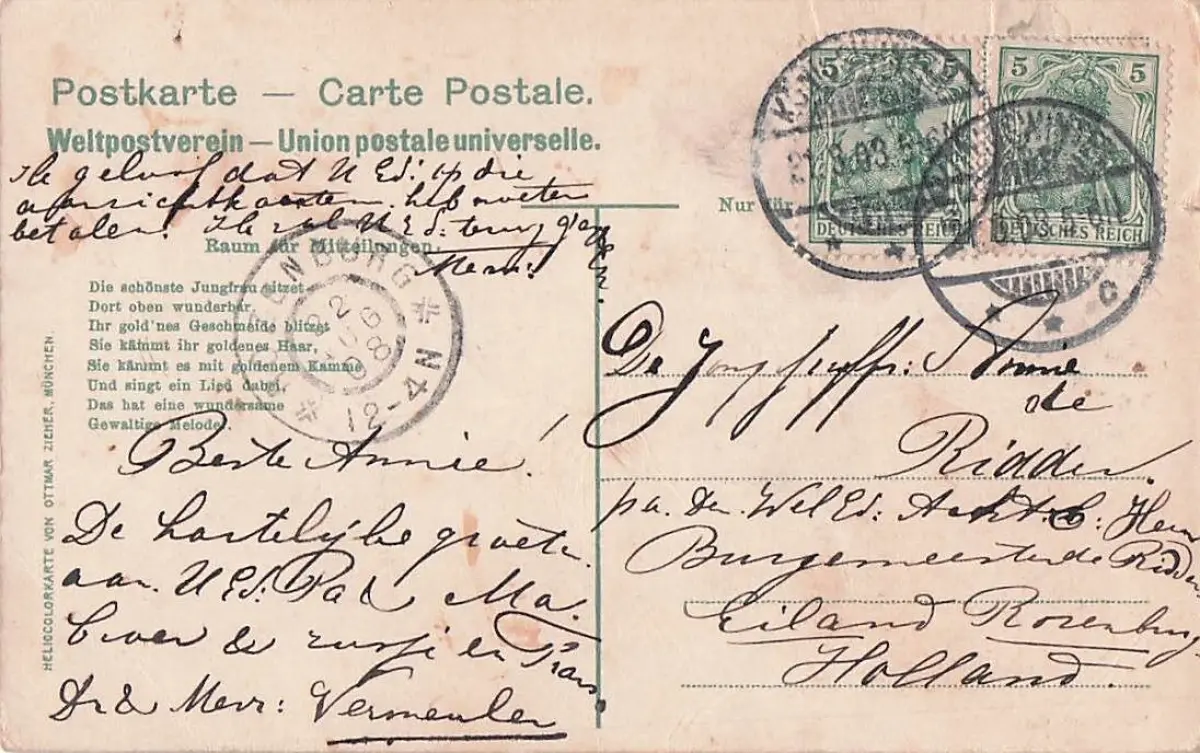 Postkarte — Carte Postale.
Weltpostverein — Union postale universelle.
Ik geloof dat U Ed: op die
aanzichtkaarten heb moeten
betalen. Ik zal U Ed: terug
Raum für Mitteilungen.
Nur für
Die schönste Jungfrau sitzet
Dort oben wunderbar,
Ihr gold'nes Geschmeide blitzet
Sie kämmt ihr goldenes Haar,
Sie kämmt es mit goldenem Kamme
Und singt ein Lied dabei,
Das hat eine wundersame
Gewaltige Melodei.
HELIOCOLORKARTE VON OTTMAR ZIEHER, MÜNCHEN.
Beste Annie!
De hartelijke groeten
aan U Ed: Pa & Ma
broer & zusje en
Dr & Mevr: Vermeulen
5 5
DEUTSCHES REICH
5 5
DEUTSCHES REICH
C
12-4N
De Jongejuffr:
de
Ridder
pa. Den Wel Ed: Acht b: Heer
Burgemeester de Ridder
Eiland Rozenburg
Holland.